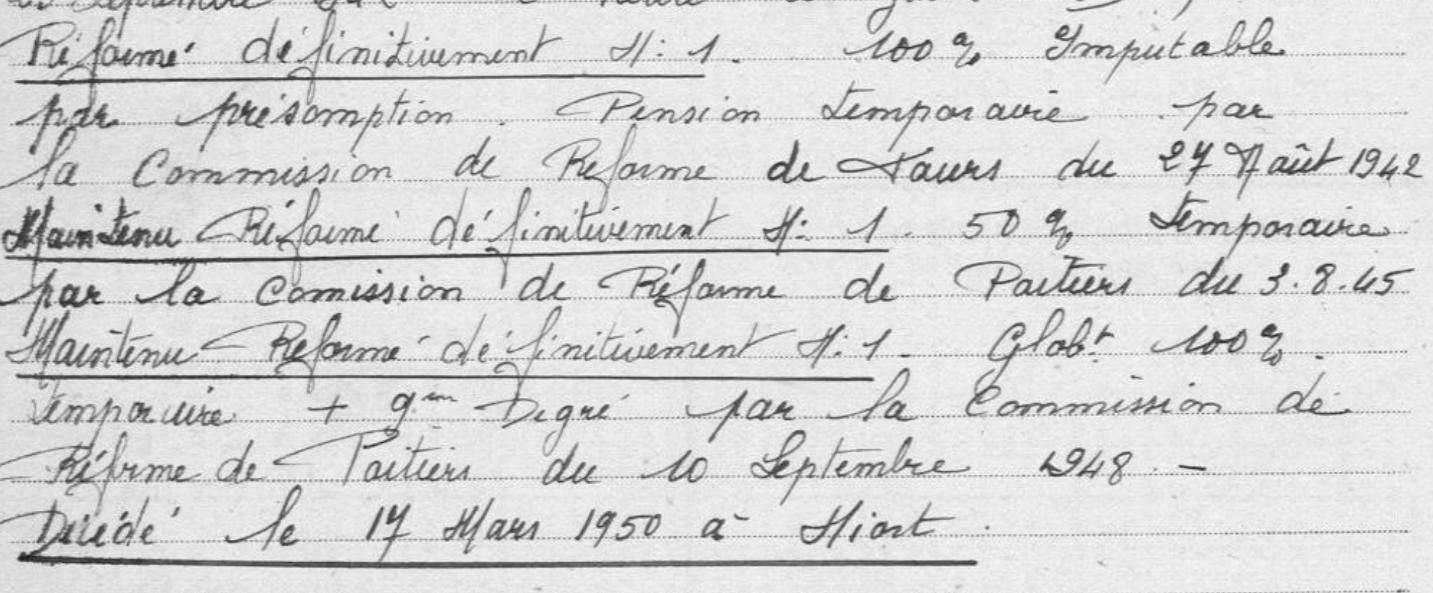 Septembre
Réformé définitivement N: 1. 100 % Imputable
par présomption. Pension temporaire par
la Commission de Reforme de Tours du 27 Août 1942
Maintenu Réformé définitivement N: 1. 50 % temporaire
par la Comission de Réforme de Poitiers du 3.8.45
Maintenu Reformé définitivement N: 1. Globt 100 %.
temporaire + 9em Degré par la Commission de
Réforme de Poitiers du 10 Septembre 1948 -
Décédé le 17 Mars 1950 à Niort.